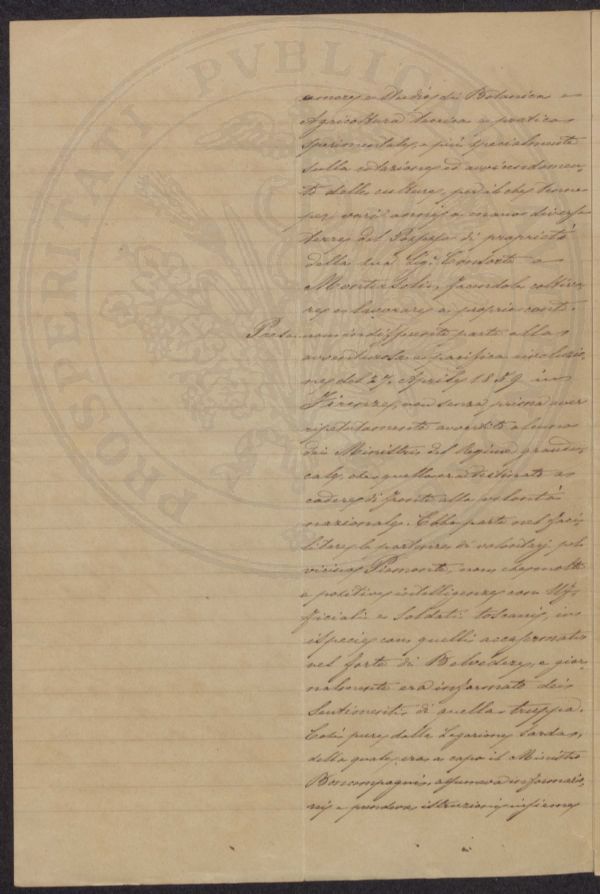 PROSPERITATI PVBLIC
amore e studio di Botanica e
Agricoltura teorica e pratica
sperimentale, e più specialmente
sulla rotazione ed avvicendamen-
to delle culture, per il che tenne
per varii anni a mano diverse
terre del di proprietà
della sua Sig.ª Consorte a
Montisoli, facendole coltiva-
re e lavorare a proprio conto.
Prese non indifferente parte alla
avventurosa e pacifica rivoluzio-
ne del 27. Aprile 1859 in
Firenze, non senza prima aver
ripetutamente avvertito alcuno
dei Ministri del Regime grandu-
cale, che quello era destinato a
cadere di fronte alla volontà
nazionale. Ebbe parte nel faci-
litare le partenze di volontarj pel
vicino Piemonte, non che molte
e positive intelligenze con Uf-
ficiali e Soldati toscani, in
ispecie con quelli accasermati
nel forte di Belvedere, e gior-
nalmente era informato dei
sentimenti di quella truppa.
Così pure dalla Legazione Sarda,
della quale era a capo il Ministro
Boncompagni, assumeva informazio-
ni e prendeva istruzioni insieme